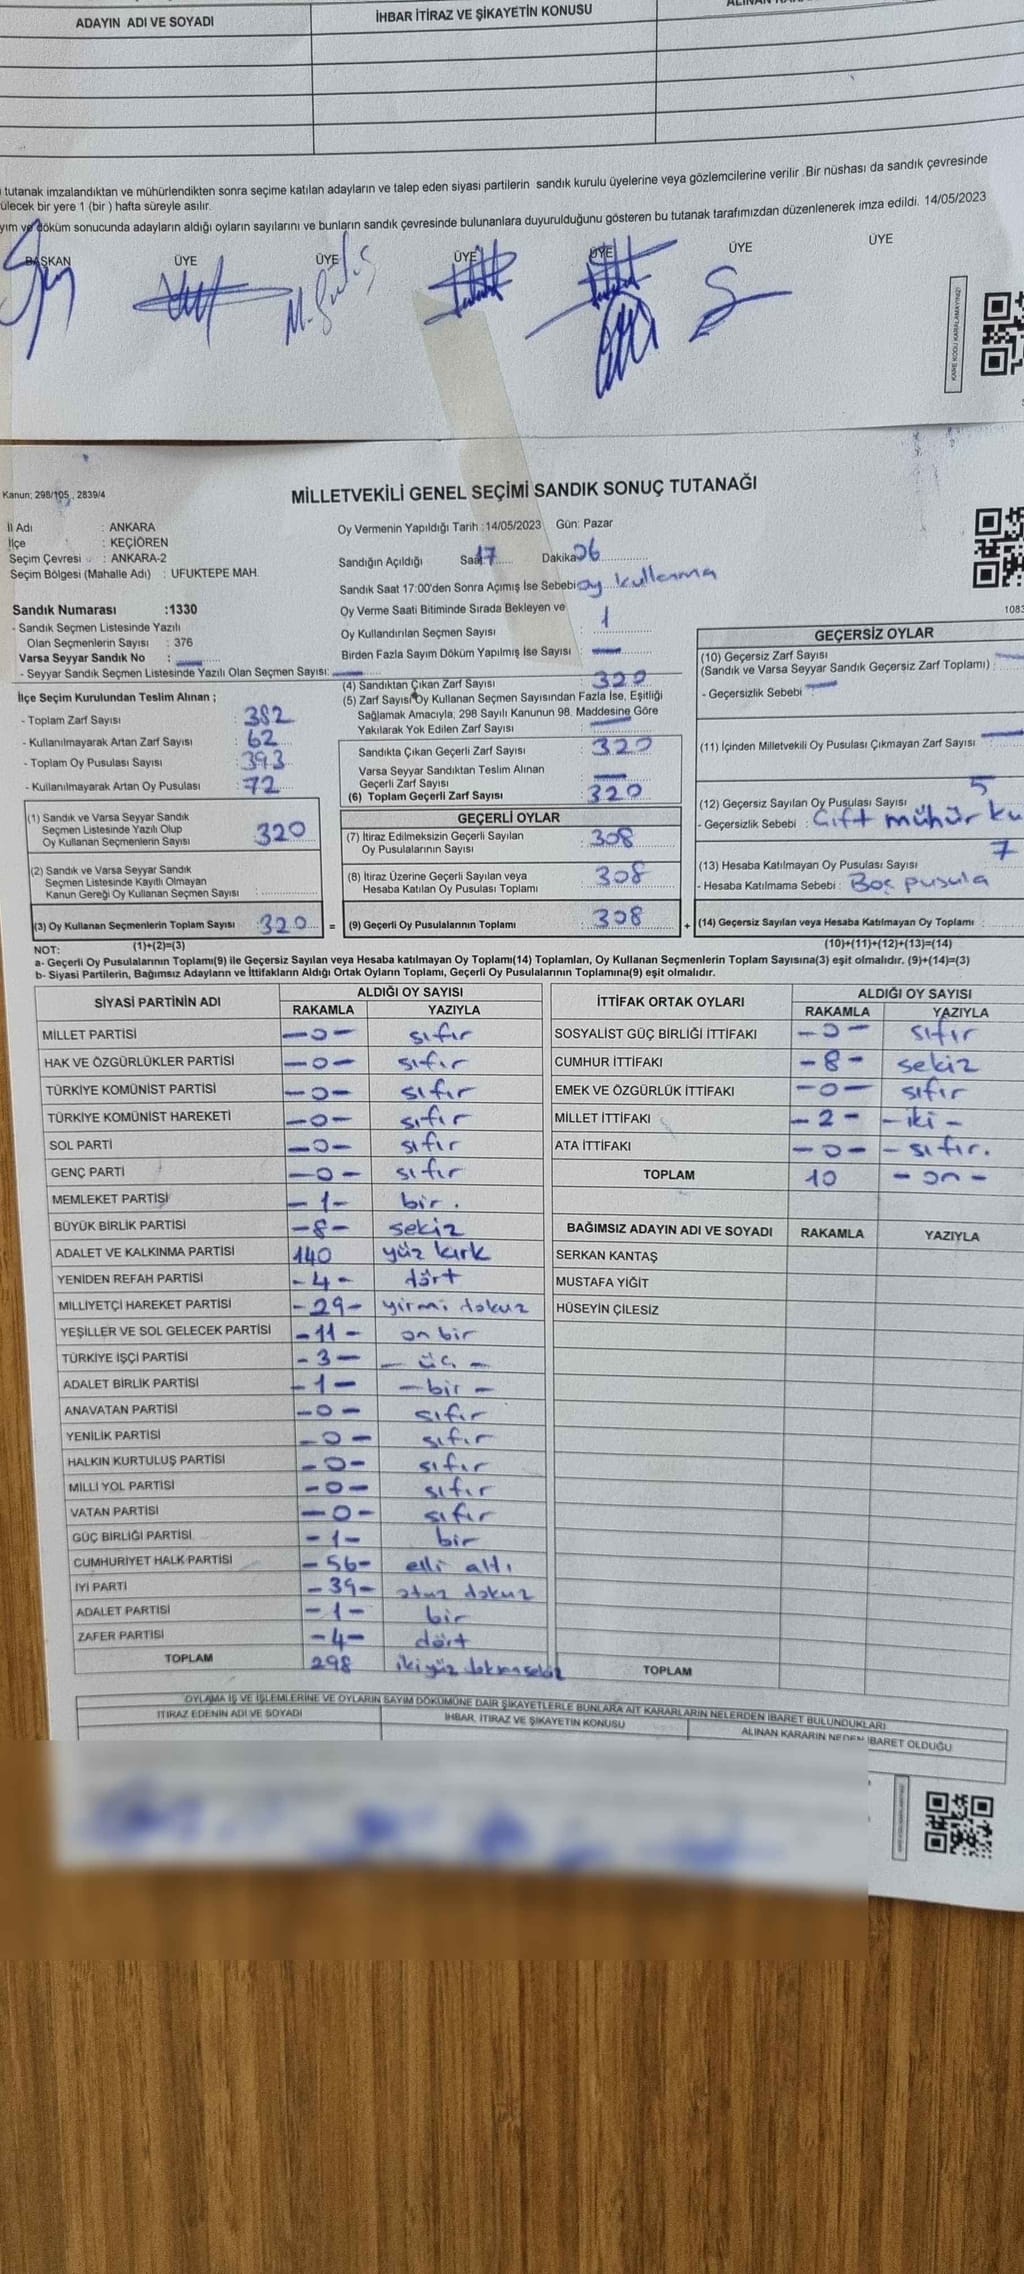 ADAYIN ADI VE SOYADI
İHBAR İTİRAZ VE ŞİKAYETİN KONUSU
tutanak imzalandıktan ve mühürlendikten sonra seçime katılan adayların ve talep eden siyasi partilerin sandık kurulu üyelerine veya gözlemcilerine verilir .Bir nüshası da sandık çevresinde
ülecek bir yere 1 (bir ) hafta süreyle asılır.
yım ve döküm sonucunda adayların aldığı oyların sayılarını ve bunların sandık çevresinde bulunanlara duyurulduğunu gösteren bu tutanak tarafımızdan düzenlenerek imza edildi. 14/05/2023
BAŞKAN ÜYE ÜYE ÜYE ÜYE ÜYE ÜYE
KARE KODU KARALAMAYINIZ!
Kanun; 298/105 , 2839/4
MİLLETVEKİLİ GENEL SEÇİMİ SANDIK SONUÇ TUTANAĞI
İl Adı : ANKARA
İlçe : KEÇİÖREN
Seçim Çevresi : ANKARA-2
Seçim Bölgesi (Mahalle Adı) : UFUKTEPE MAH.
Oy Vermenin Yapıldığı Tarih :14/05/2023 Gün: Pazar
Sandığın Açıldığı Saat 17 Dakika 06
Sandık Saat 17:00'den Sonra Açımış İse Sebebi oy kullanma
Oy Verme Saati Bitiminde Sırada Bekleyen ve
Oy Kullandırılan Seçmen Sayısı : 1
Birden Fazla Sayım Döküm Yapılmış İse Sayısı : —
Sandık Numarası :1330
- Sandık Seçmen Listesinde Yazılı
Olan Seçmenlerin Sayısı : 376
Varsa Seyyar Sandık No : —
- Seyyar Sandık Seçmen Listesinde Yazılı Olan Seçmen Sayısı: —
İlçe Seçim Kurulundan Teslim Alınan ;
- Toplam Zarf Sayısı : 382
- Kullanılmayarak Artan Zarf Sayısı : 62
- Toplam Oy Pusulası Sayısı : 393
- Kullanılmayarak Artan Oy Pusulası : 72
(1) Sandık ve Varsa Seyyar Sandık
Seçmen Listesinde Yazılı Olup
Oy Kullanan Seçmenlerin Sayısı : 320
(2) Sandık ve Varsa Seyyar Sandık
Seçmen Listesinde Kayıtlı Olmayan
Kanun Gereği Oy Kullanan Seçmen Sayısı :
(3) Oy Kullanan Seçmenlerin Toplam Sayısı : 320 =
(4) Sandıktan Çıkan Zarf Sayısı : 320
(5) Zarf Sayısı Oy Kullanan Seçmen Sayısından Fazla İse, Eşitliği
Sağlamak Amacıyla, 298 Sayılı Kanunun 98. Maddesine Göre
Yakılarak Yok Edilen Zarf Sayısı : —
Sandıkta Çıkan Geçerli Zarf Sayısı : 320
Varsa Seyyar Sandıktan Teslim Alınan
Geçerli Zarf Sayısı : —
(6) Toplam Geçerli Zarf Sayısı : 320
GEÇERLİ OYLAR
(7) İtiraz Edilmeksizin Geçerli Sayılan
Oy Pusulalarının Sayısı : 308
(8) İtiraz Üzerine Geçerli Sayılan veya
Hesaba Katılan Oy Pusulası Toplamı : 308
(9) Geçerli Oy Pusulalarının Toplamı : 308 +
1083
GEÇERSİZ OYLAR
(10) Geçersiz Zarf Sayısı
(Sandık ve Varsa Seyyar Sandık Geçersiz Zarf Toplamı) : —
- Geçersizlik Sebebi : —
(11) İçinden Milletvekili Oy Pusulası Çıkmayan Zarf Sayısı : —
(12) Geçersiz Sayılan Oy Pusulası Sayısı 5
- Geçersizlik Sebebi : Çift mühür ku
(13) Hesaba Katılmayan Oy Pusulası Sayısı 7
- Hesaba Katılmama Sebebi : Boş pusula
(14) Geçersiz Sayılan veya Hesaba Katılmayan Oy Toplamı :
NOT: (1)+(2)=(3) (10)+(11)+(12)+(13)=(14)
a- Geçerli Oy Pusulalarının Toplamı(9) ile Geçersiz Sayılan veya Hesaba katılmayan Oy Toplamı(14) Toplamları, Oy Kullanan Seçmenlerin Toplam Sayısına(3) eşit olmalıdır. (9)+(14)=(3)
b- Siyasi Partilerin, Bağımsız Adayların ve İttifakların Aldığı Ortak Oyların Toplamı, Geçerli Oy Pusulalarının Toplamına(9) eşit olmalıdır.
SİYASİ PARTİNİN ADI ALDIĞI OY SAYISI
RAKAMLA YAZIYLA
MİLLET PARTİSİ —0— sıfır
HAK VE ÖZGÜRLÜKLER PARTİSİ —0— sıfır
TÜRKİYE KOMÜNİST PARTİSİ —0— sıfır
TÜRKİYE KOMÜNİST HAREKETİ —0— sıfır
SOL PARTİ —0— sıfır
GENÇ PARTİ —0— sıfır
MEMLEKET PARTİSİ —1— bir .
BÜYÜK BİRLİK PARTİSİ —8— sekiz
ADALET VE KALKINMA PARTİSİ 140 yüz kırk
YENİDEN REFAH PARTİSİ —4— dört
MİLLİYETÇİ HAREKET PARTİSİ —29— yirmi dokuz
YEŞİLLER VE SOL GELECEK PARTİSİ —11— on bir
TÜRKİYE İŞÇİ PARTİSİ —3— — üç —
ADALET BİRLİK PARTİSİ —1— —bir—
ANAVATAN PARTİSİ —0— sıfır
YENİLİK PARTİSİ —0— sıfır
HALKIN KURTULUŞ PARTİSİ —0— sıfır
MİLLİ YOL PARTİSİ —0— sıfır
VATAN PARTİSİ —0— sıfır
GÜÇ BİRLİĞİ PARTİSİ —1— bir
CUMHURİYET HALK PARTİSİ —56— elli altı
İYİ PARTİ —39— otuz dokuz
ADALET PARTİSİ —1— bir
ZAFER PARTİSİ —4— dört
TOPLAM 298 ikiyüz doksansekiz
İTTİFAK ORTAK OYLARI ALDIĞI OY SAYISI
RAKAMLA YAZIYLA
SOSYALİST GÜÇ BİRLİĞİ İTTİFAKI —0— sıfır
CUMHUR İTTİFAKI —8— sekiz
EMEK VE ÖZGÜRLÜK İTTİFAKI —0— sıfır
MİLLET İTTİFAKI —2— —iki—
ATA İTTİFAKI —0— —sıfır.
TOPLAM 10 —on—
BAĞIMSIZ ADAYIN ADI VE SOYADI RAKAMLA YAZIYLA
SERKAN KANTAŞ
MUSTAFA YİĞİT
HÜSEYİN ÇİLESİZ
TOPLAM
OYLAMA İŞ VE İŞLEMLERİNE VE OYLARIN SAYIM DÖKÜMÜNE DAİR ŞİKAYETLERLE BUNLARA AİT KARARLARIN NELERDEN İBARET BULUNDUKLARI
İTİRAZ EDENİN ADI VE SOYADI
İHBAR, İTİRAZ VE ŞİKAYETİN KONUSU
ALINAN KARARIN NEDEN İBARET OLDUĞU